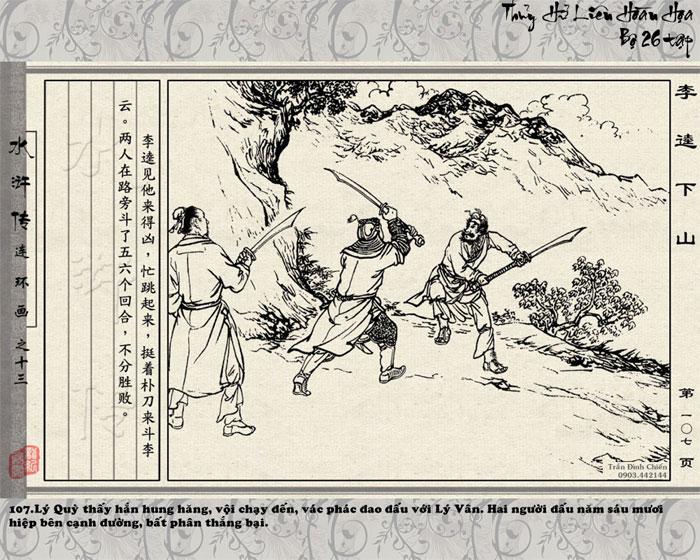 Thủy Hử Liên Hoàn Họa
Bộ 26 tập
李逵下山
第一〇七页
李逵见他来得凶，忙跳起来，挺着朴刀来斗李
云。两人在路旁斗了五六个回合，不分胜败。
水浒传连环画之十三
Trần Đình Chiến
0903.442144
107.Lý Quỳ thấy hắn hung hăng, vội chạy đến, vác phác dao đấu với Lý Vân. Hai người đấu năm sáu mươi
hiệp bên cạnh đường, bất phân thắng bại.